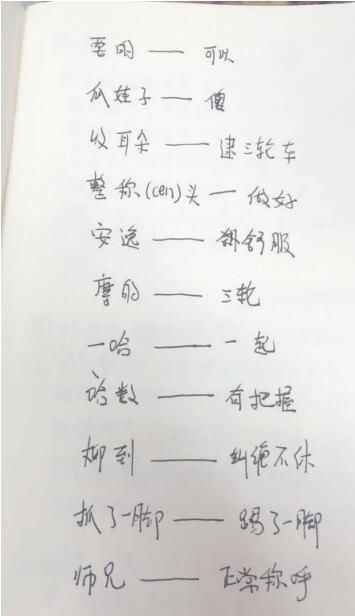 要的——可以
瓜娃子——傻
收耳朵——逮三轮车
整称(cen)头—做好
安逸——舒服
摩的——三轮
一哈——一起
数——有把握
到——纠绝不休
抓了一脚——踢了一脚
师兄——正常称呼